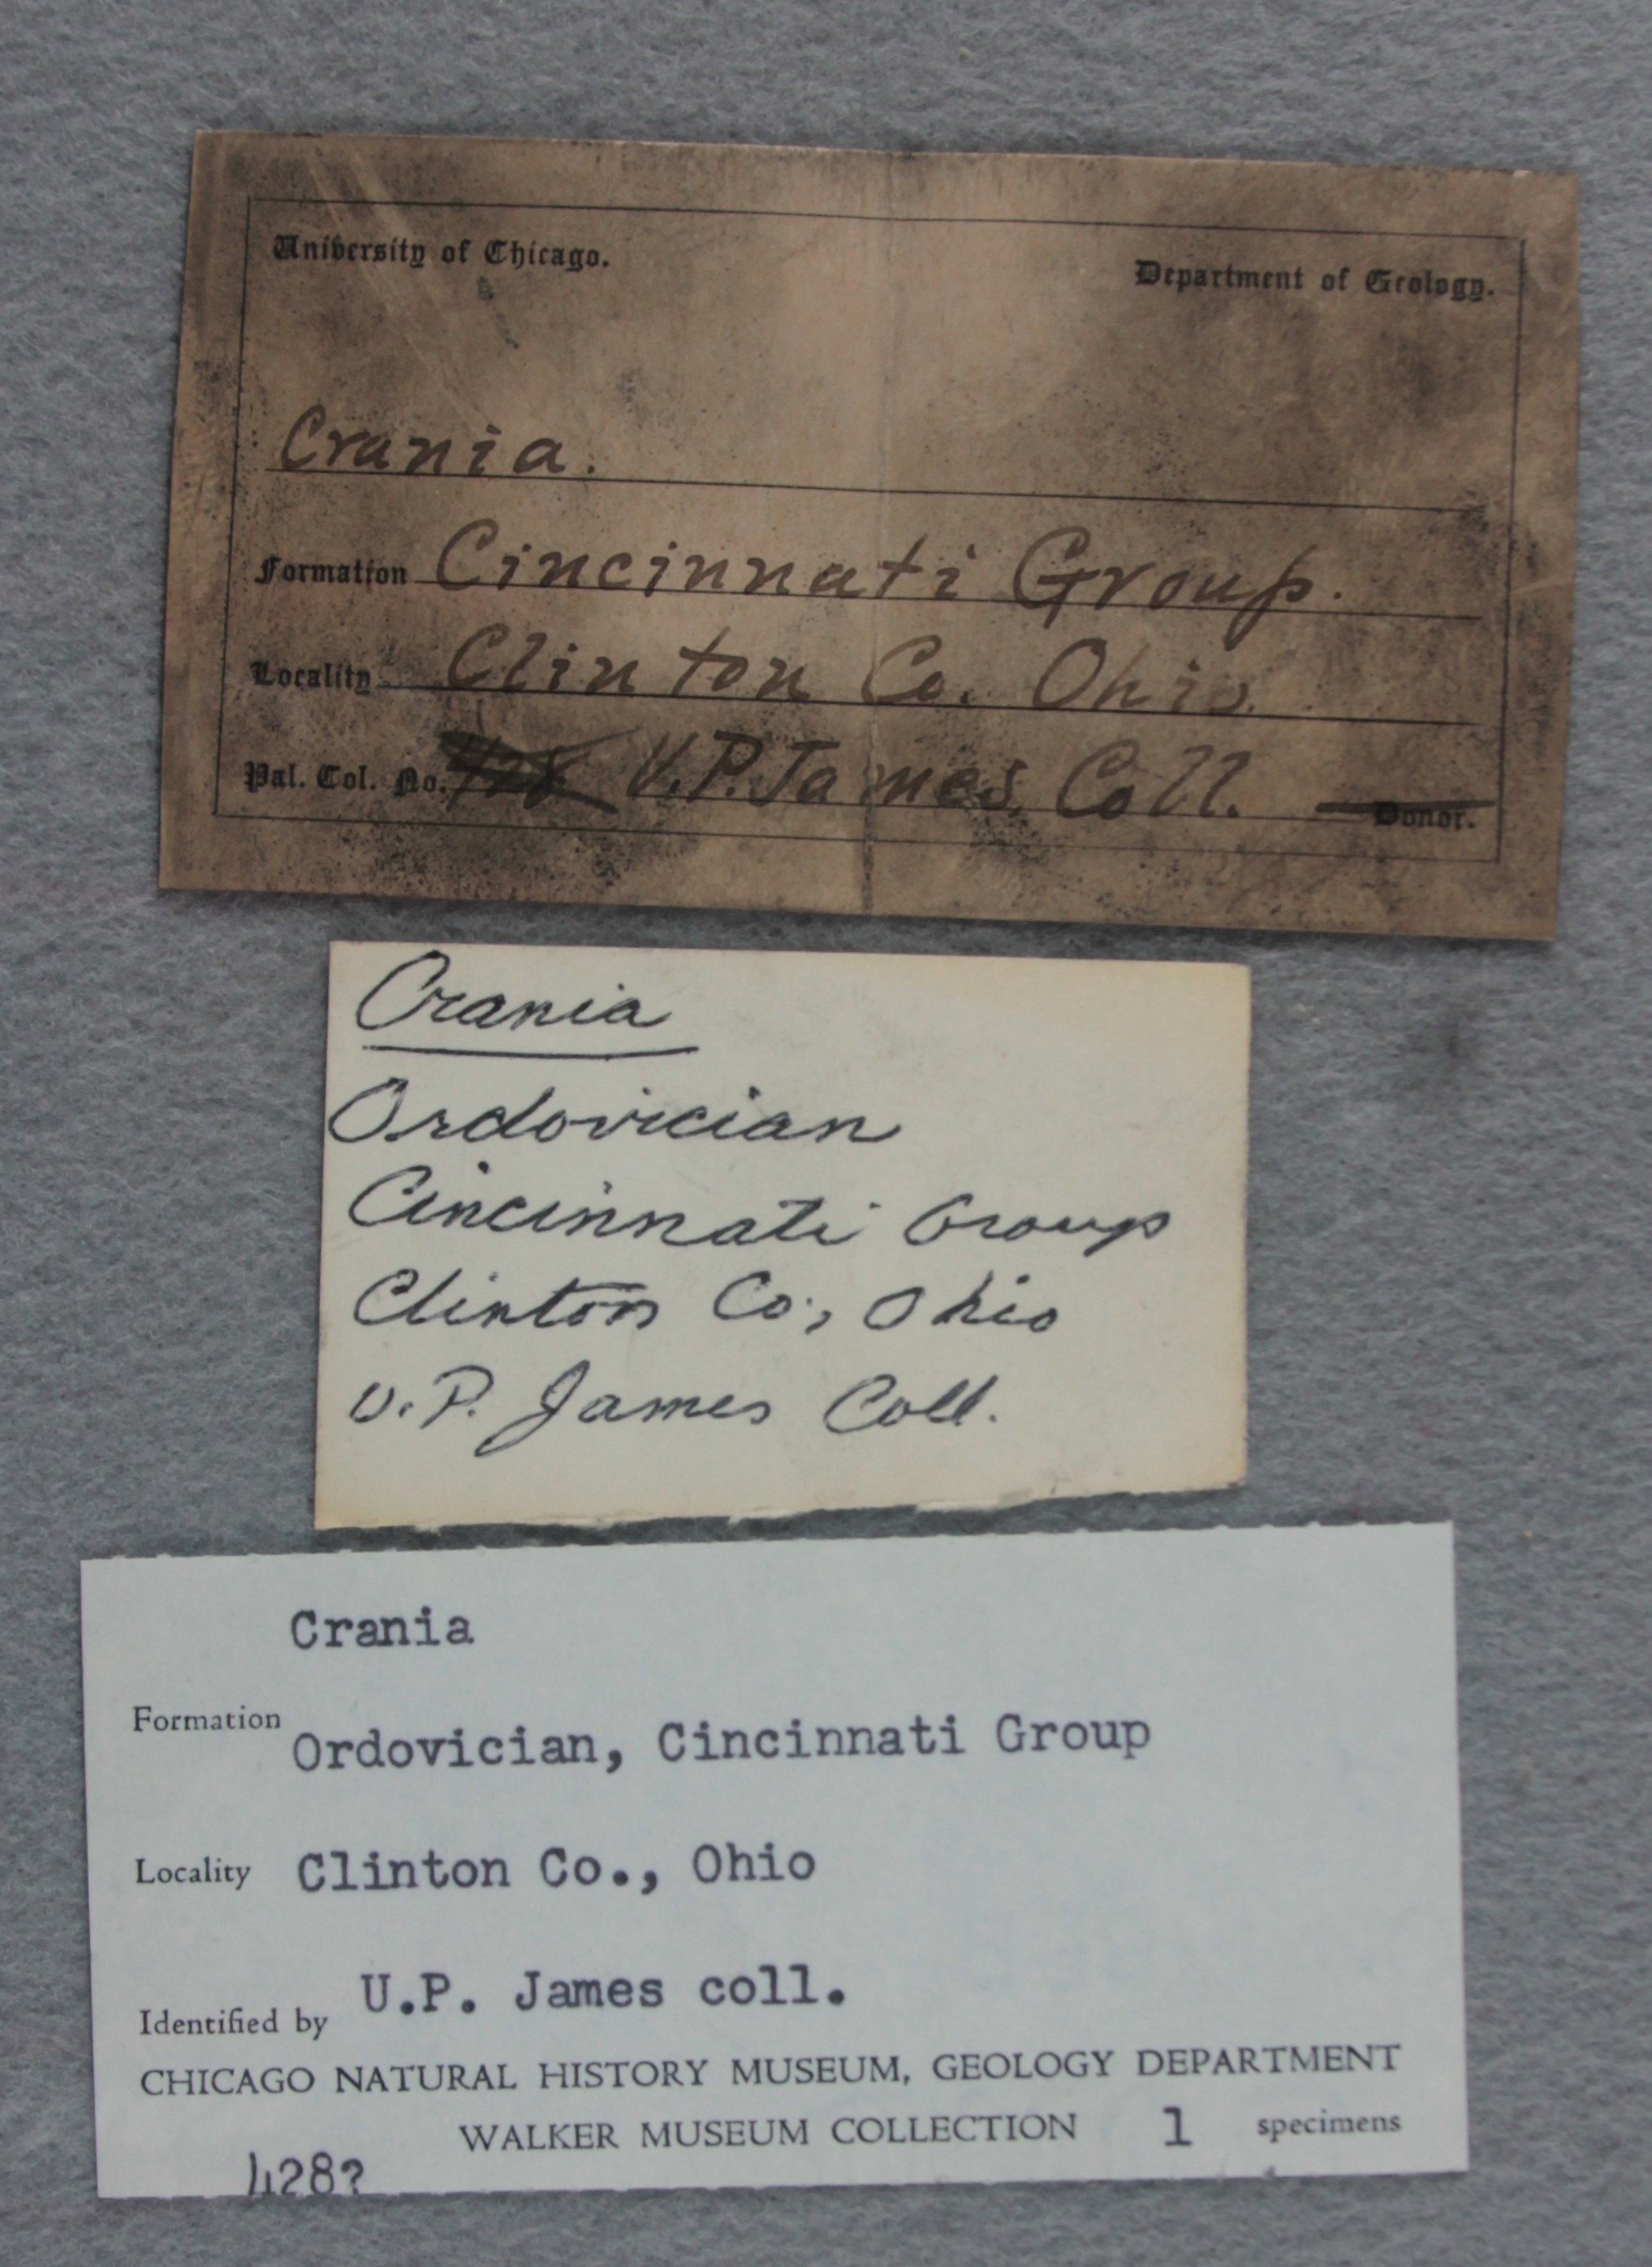 University of Chicago.
Department of Geology.
Crania.
Formation Cincinnati Group.
Locality Clinton Co. Ohio.
Pal. Col. No. 428 U.P. James Coll. Donor.
Crania
Ordovician
Cincinnati Group
Clinton Co., Ohio
U.P. James Coll.
Crania
Formation Ordovician, Cincinnati Group
Locality Clinton Co., Ohio
Identified by U.P. James coll.
CHICAGO NATURAL HISTORY MUSEUM, GEOLOGY DEPARTMENT
WALKER MUSEUM COLLECTION 1 specimens
428?